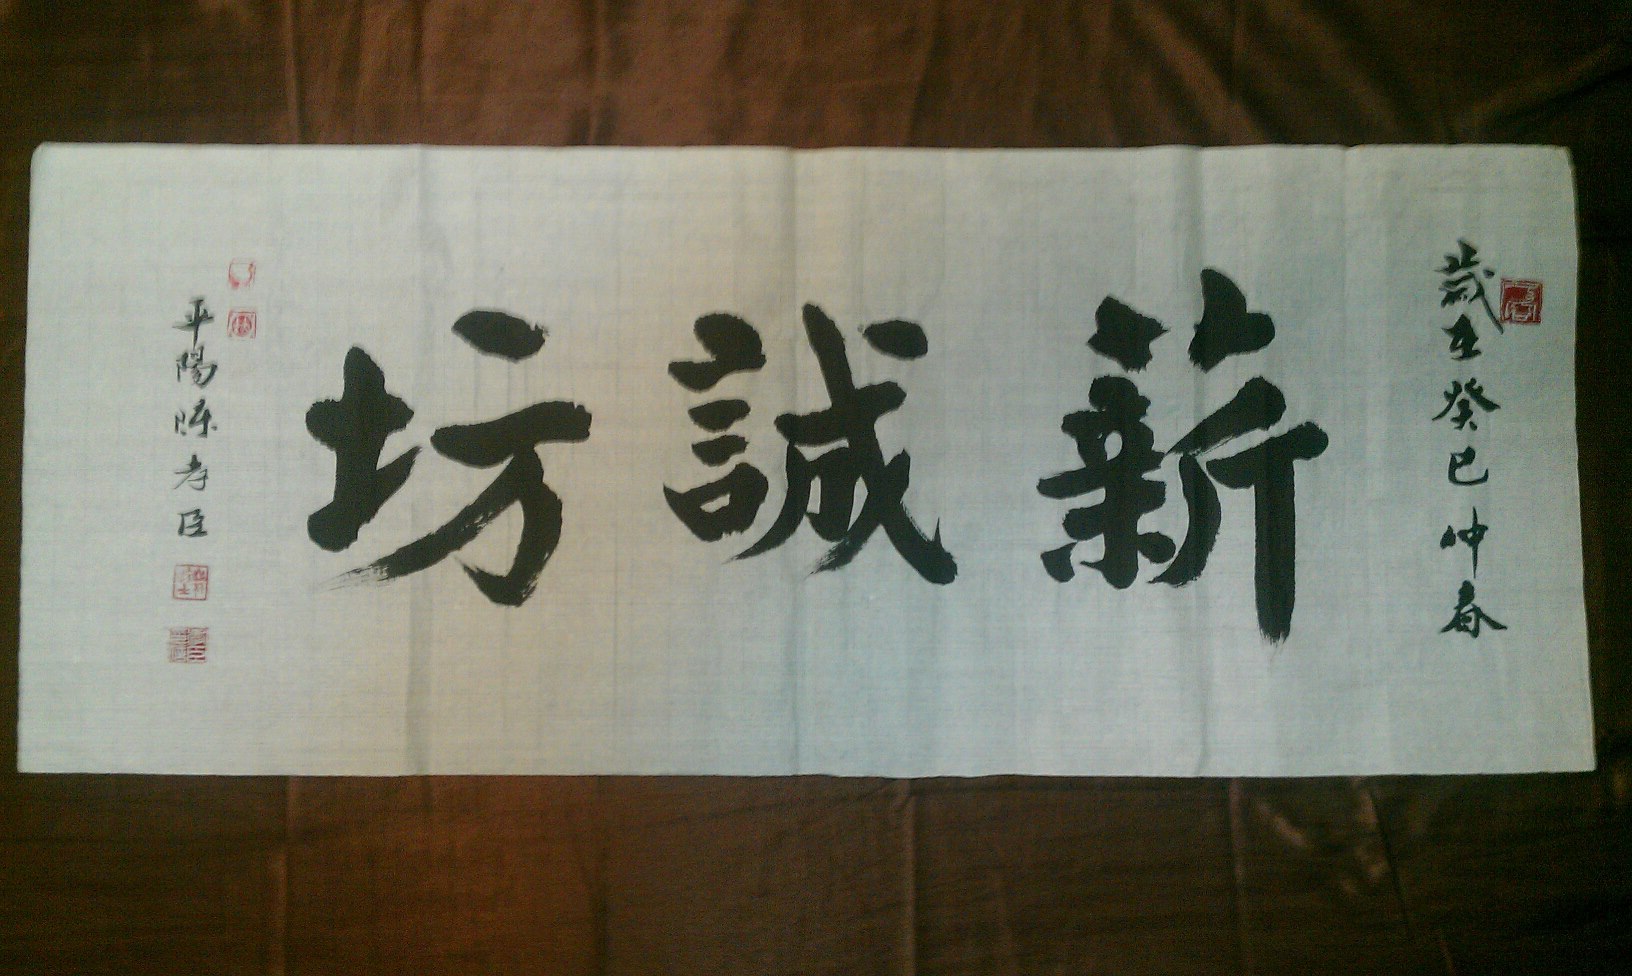 歲在癸巳仲春
薪誠坊
平陽陳孝臣